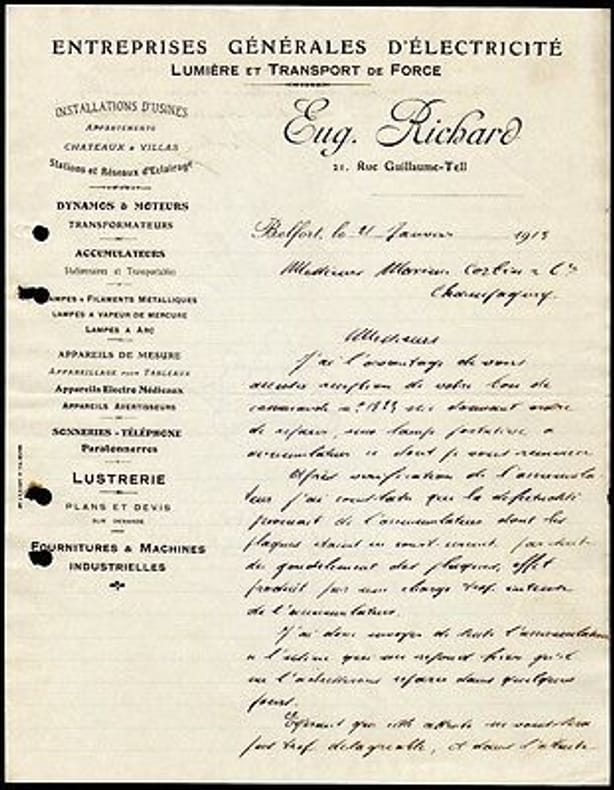 ENTREPRISES GÉNÉRALES D'ÉLECTRICITÉ
LUMIÈRE ET TRANSPORT DE FORCE
Eug. Richard
21, Rue Guillaume-Tell
INSTALLATIONS D'USINES
APPARTEMENTS
CHATEAUX & VILLAS
Stations et Réseaux d'Eclairage
DYNAMOS & MOTEURS
TRANSFORMATEURS
ACCUMULATEURS
Stationnaires et Transportables
LAMPES A FILAMENTS MÉTALLIQUES
LAMPES A VAPEUR DE MERCURE
LAMPES A ARC
APPAREILS DE MESURE
APPAREILLAGE POUR TABLEAUX
Appareils Electro Médicaux
APPAREILS AVERTISSEURS
SONNERIES - TÉLÉPHONE
Paratonnerres
LUSTRERIE
PLANS ET DEVIS
SUR DEMANDE
FOURNITURES & MACHINES
INDUSTRIELLES
Belfort, le 21 Janvier 1913
Messieurs Marius Corbin & Cie
Champagney
Messieurs
J'ai l'avantage de vous
accuser réception de votre bon de
commande n° me donnant ordre
de réparer, une lampe portative a
accumulateur
Après vérification de l'accumula-
teur j'ai constaté que la défectuosité
provenait de l'accumulateur dont les
plaques étaient en court-circuit, par suite
du gondolement des plaques, effet
produit par une charge trop intense
de l'accumulateur.
J'ai donc envoyé de suite l'accumulateur
a l'usine qui me répond hier qu'il
me réparé dans quelques
jours.
Espérant que cette attente ne vous sera
pas trop désagréable, et dans l'attente